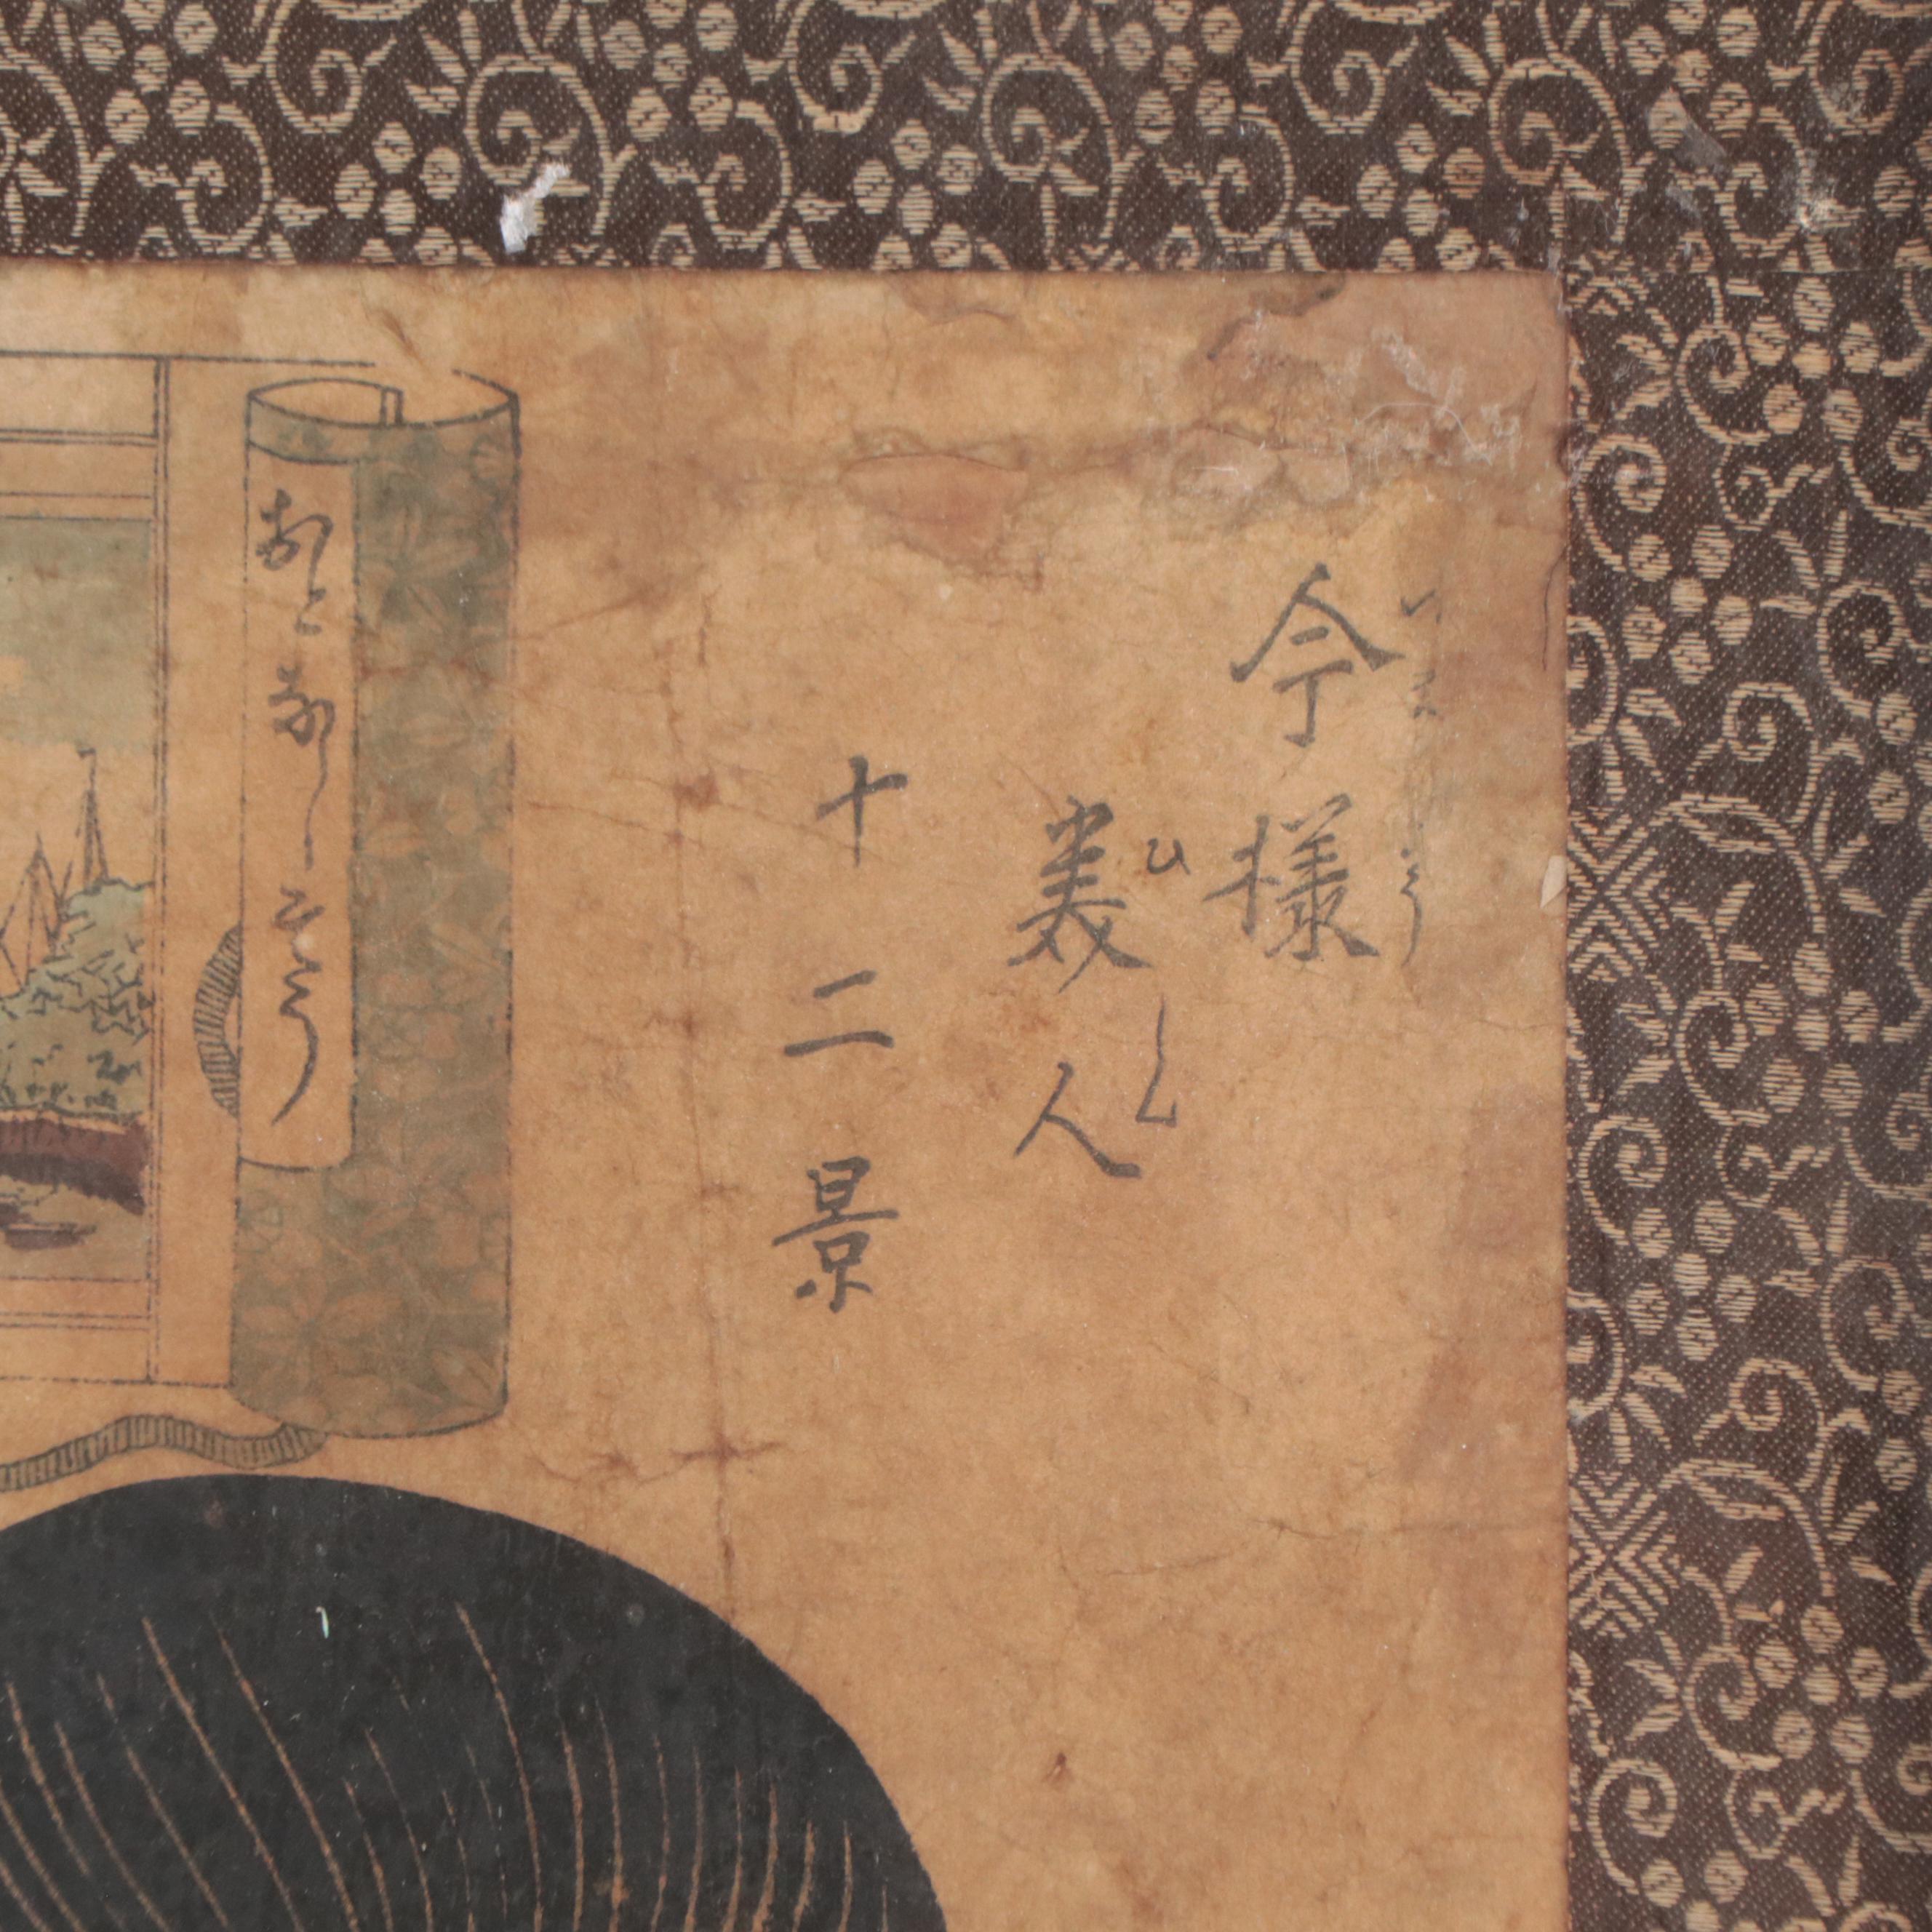 今様
いまやう
美人
ひじん
十二景
おとなしさう